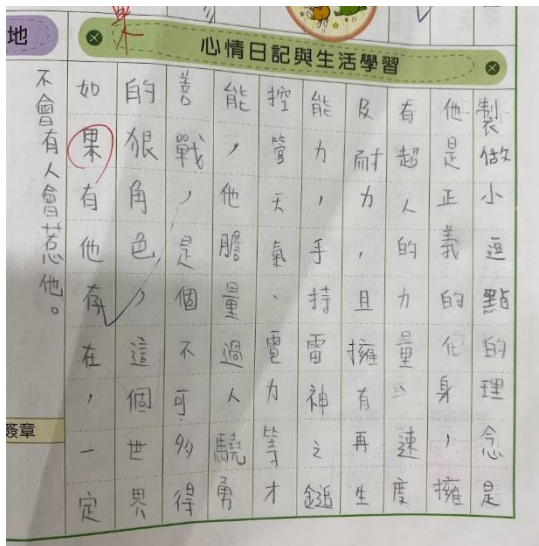 心情日記與生活學習
製做小逗點的理念是
他是正義的化身，擁
有超人的力量、速度
及耐力，且擁有再生
能力，手持雷神之鎚
控管天氣、電力等才
能，他膽量過人驍勇
善戰，是個不可多得
的狠角色，這個世界
如果有他存在，一定
不會有人會惹他。
果
地
簽章